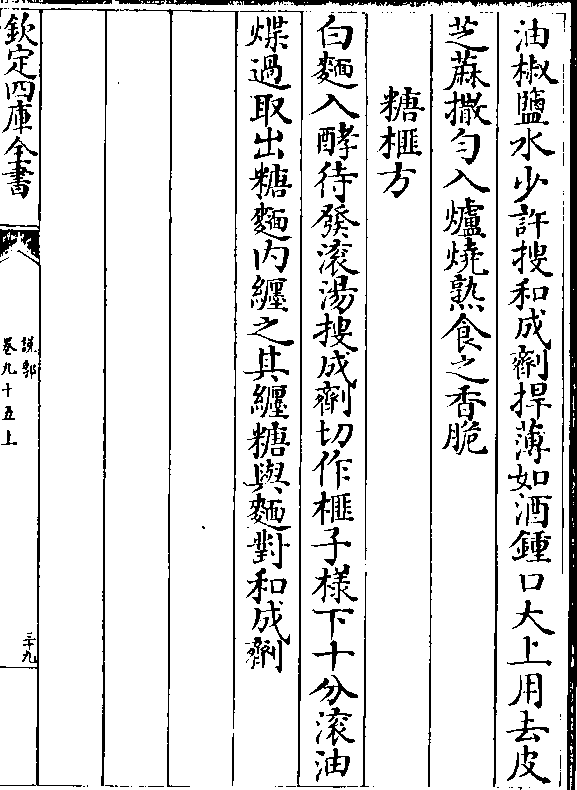 油椒鹽水少許搜和成劑捍薄如酒鍾口大上用去皮
芝蔴撒勻入爐燒熟食之香脆
糖榧方
白麵入酵待發滚湯搜成劑切作榧子様下十分滚油
煠過取出糖麵内纒之其纒糖與麵對和成劑
欽定四庫全書
説郛
卷九十五上
三十九